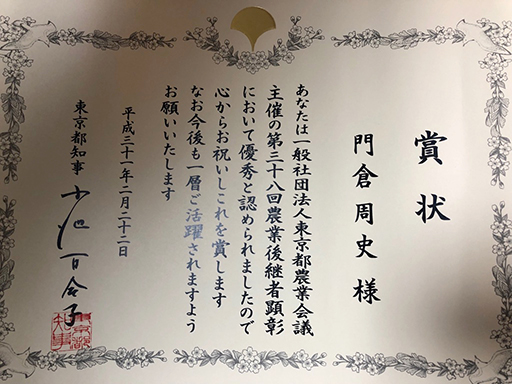 賞状
門倉周史様
あなたは一般社団法人東京都農業会議
主催の第三十八回農業後継者顕彰
において優秀と認められましたので
心からお祝いしこれを賞します
なお今後も一層ご活躍されますよう
お願いいたします
平成三十一年二月二十二日
東京都知事 小池百合子
東京都知事